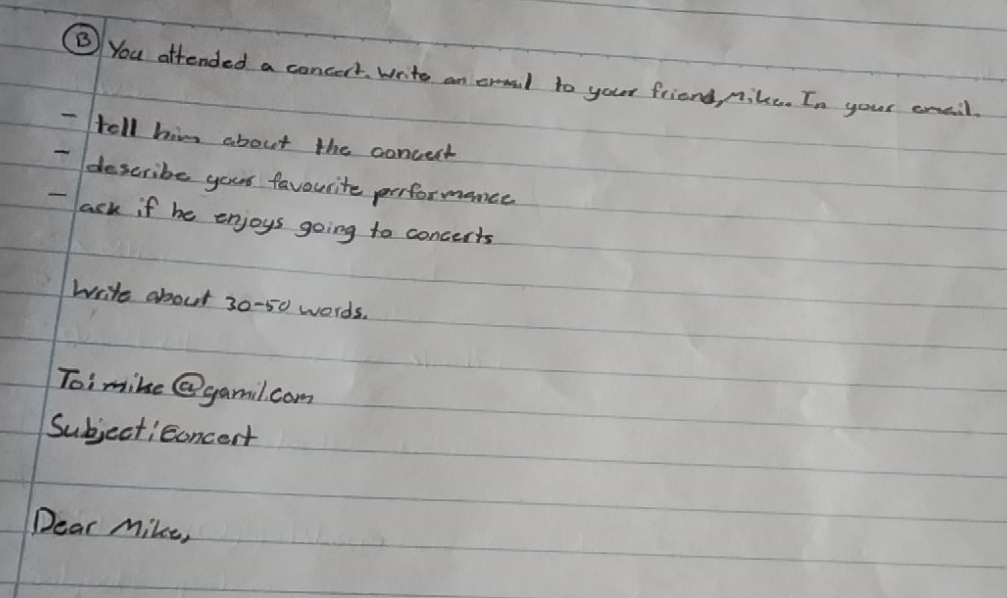 B You attended a concert. Write an email to your friend, Mike. In your email.
- tell him about the concert
- describe your favourite performance
- ask if he enjoys going to concerts
Write about 30-50 words.
To: mike@gamil.com
Subject: Concert
Dear Mike,